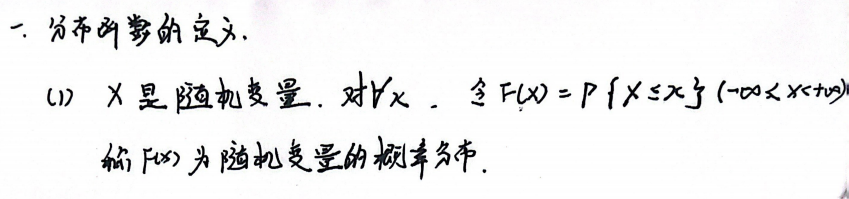 一. 分布函数的定义.
(1) X 是随机变量. 对∀x . 令 F(x) = P{X≤x} (-∞<x<+∞)
称 F(x) 为随机变量的概率分布.